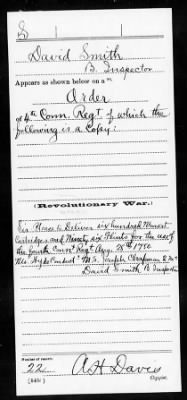 S
David Smith
B. Inspector
Appears as shown below on a
Order
of 4th Conn. Regt of which the
following is a Copy:
(Revolutionary War.)
Sir Please to Deliver six hundred Musket
Cartridges and Ninety six Flints for the use of
the fourth Connt Regt Aug. 28th 1780
Joseph Chapman
David Smith B Inspector
Number of record:
22
A H Davis
Copyist.